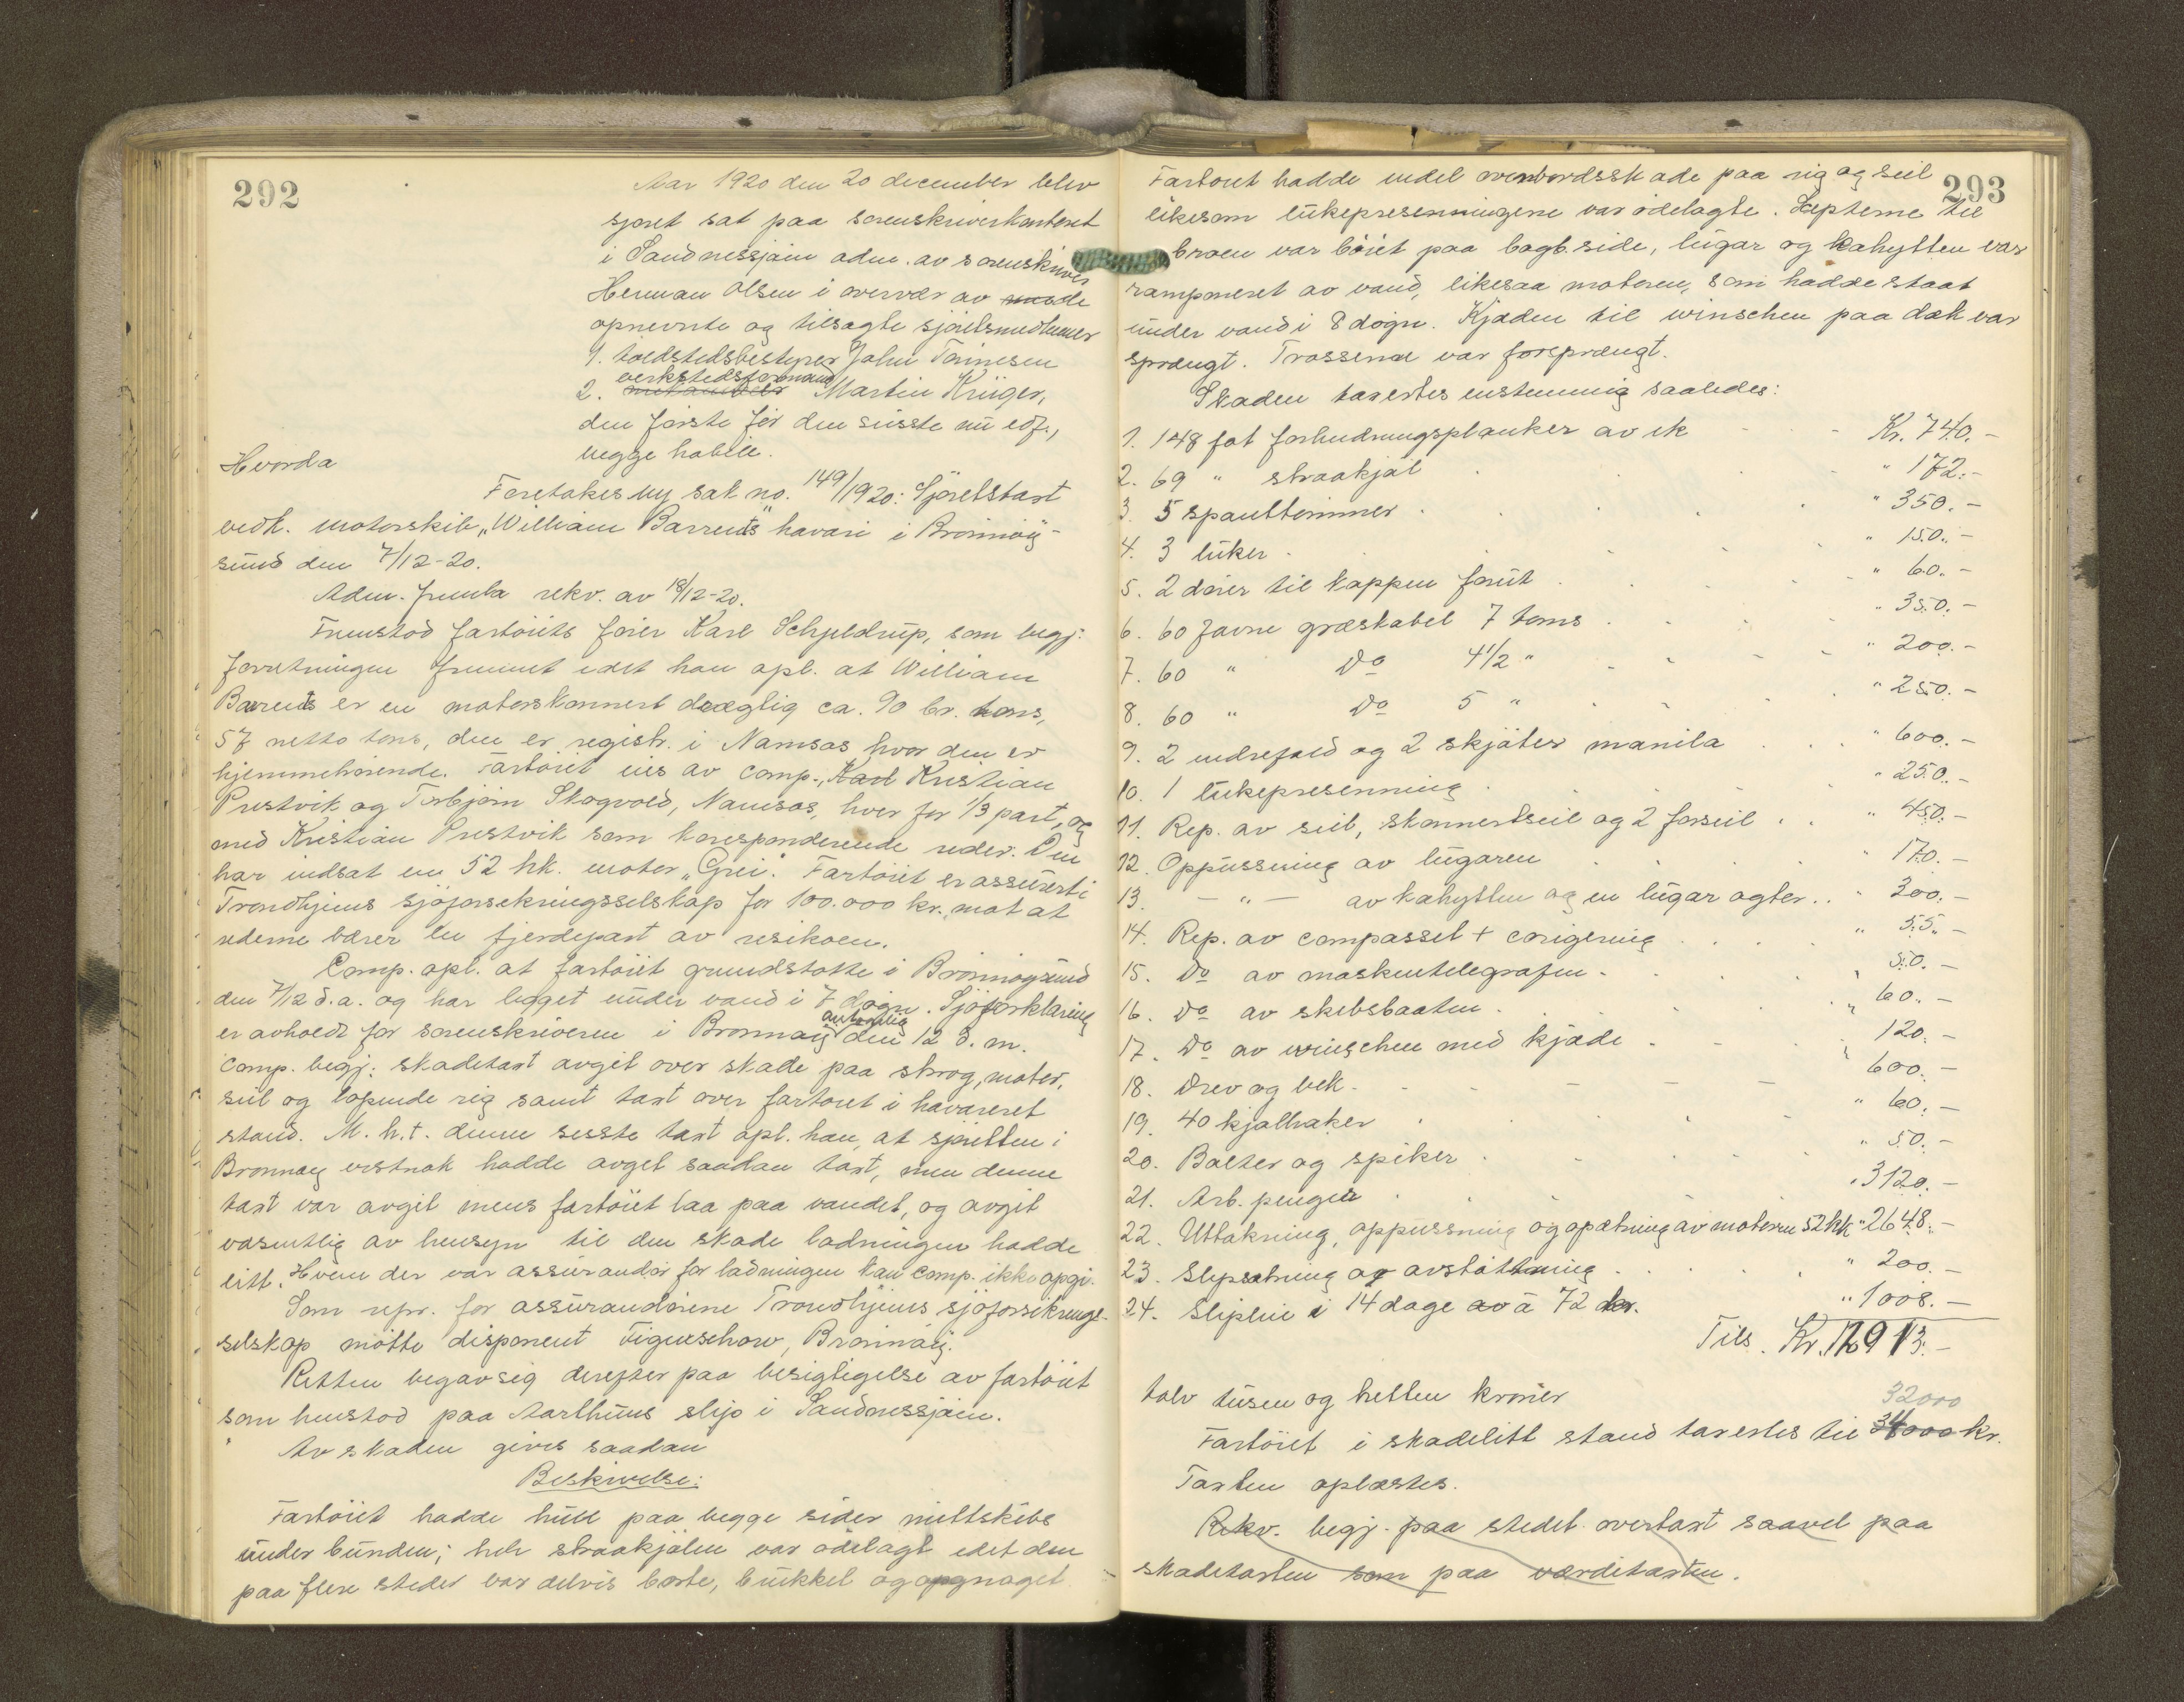 292
Aar 1920 den 20 december blev
sjøret sat paa sorenskriverkontoret
i Sandnessjøen adm. av sorenskriver
Herman Olsen i overvær av
opnevnte og tilsagte sjøretsmedlemer
1. toldstedsbestyrer John Tønnesen
verkstedsformand
2. Martin Krüger,
den første før den sisste nu edf.,
begge habile.
Hvorda
Foretokes ny sak no. 149/1920: Sjøretstaxt
vedk. motorskib „William Barrents" havari i Brønnøy-
sund den 7/12-20.
Adm. fremla rekv. av 18/12-20.
Fremstod fartøiets fører Karl Schjeldrup, som begj.
forretningen fremmet idet han opl. at William
Barrents er en motorskonnert drægtig ca. 90 br. tons,
57 netto tons, den er registr. i Namsos hvor den er
hjemmehørende. Fartøiet eies av comp., Karl Kristian
Prestvik og Torbjørn Skogvold, Namsos, hver for 1/3 part, og
med Kristian Prestvik som koresponderende reder. Den
har indsat en 52 hk. motor „Grei". Fartøiet er assurert i
Trondhjems sjøforsekringsselskap for 100.000 kr., mot at
rederne bærer en fjerdepart av resikoen.
Comp. opl. at fartøiet grundstøtte i Brønnøysund
den 7/12 d.a. og har ligget under vand i 7 døgn. Sjøforklaring
er avholdt for sorenskriveren i Brønnøy den 12 d.m.
Comp. begj. skadetaxt avgit over skade paa skrog, motor,
seil og løpende rig samt taxt over fartøiet i havareret
stand. M.h.t. denne sisste taxt opl. han, at sjøretten i
Brønnøy vistnok hadde avget saadan taxt, men denne
taxt var avgit mens fartøiet laa paa vandet, og avgit
væsentlig av hensyn til den skade ladningen hadde
litt. Hvem der var assurandør for ladningen kan comp. ikke opgi.
Som repr. for assurandørene Trondhjems sjøforsikrings-
selskap møtte disponent Figenschow, Brønnøy.
Retten begav sig derefter paa besigtigelse av fartøiet
som henstod paa Aarthuns slip i Sandnessjøen.
Av skaden gives saadan
Beskrivelse:
Fartøiet hadde hull paa begge sider mittskibs
under bunden; hele straakjølen var ødelagt idet den
paa flere steder var delvis borte, bukket og opgnaget.
293
Fartøiet hadde endel ovenbordsskade paa rig og seil
likesom lukepresenningene var ødelagte. Støpterne til
broen var bøiet paa bagb. side, lugar og kahytten var
ramponeret av vand, likesaa motoren, som hadde staat
under vand i 8 døgn. Kjæden til winschen paa dæk var
sprængt. Trosserne var forsprængt.
Skaden taxertes enstemmig saaledes:
1. 148 fot forhudningsplanker av ek Kr. 740.-
2. 69 " straakjøl " 172.-
3. 5 spanttømmer " 350.-
4. 3 luker " 150.-
5. 2 dører til kappen forut " 60.-
6. 60 favne græskabel 7 toms " 350.-
7. 60 " Do 4 1/2 " " 200.-
8. 60 " Do 5 " " 250.-
9. 2 endrefald og 2 skjøter manila " 600.-
10. 1 lukepresenning " 250.-
11. Rep. av seil, skonnertseil og 2 forseil " 450.-
12. Oppussning av lugaren " 170.-
13. - " - av kahytten og en lugar agter " 300.-
14. Rep. av compasset + corigering " 55.-
15. Do av maskintelegrafen " 50.-
16. Do av skibsbaaten " 60.-
17. Do av winschen med kjæde " 120.-
18. Drev og bek " 600.-
19. 40 kjølhaker " 60.-
20. Bolter og spiker " 50.-
21. Arb. penger " 3120.-
22. Uttakning, oppussning og opsætning av motoren 52 hk " 2648.-
23. Slipsætning og avstøttning " 200.-
24. Slipleie i 14 dage à 72 kr. " 1008.-
Tils. Kr. 12013.-
tolv tusen og tretten kroner
32000
Fartøiet i skadelitt stand taxertes til 34000 kr.
Taxten oplæstes.
Rekv. begj. paa stedet overtaxt saavel paa
skadetaxten som paa værditaxten.